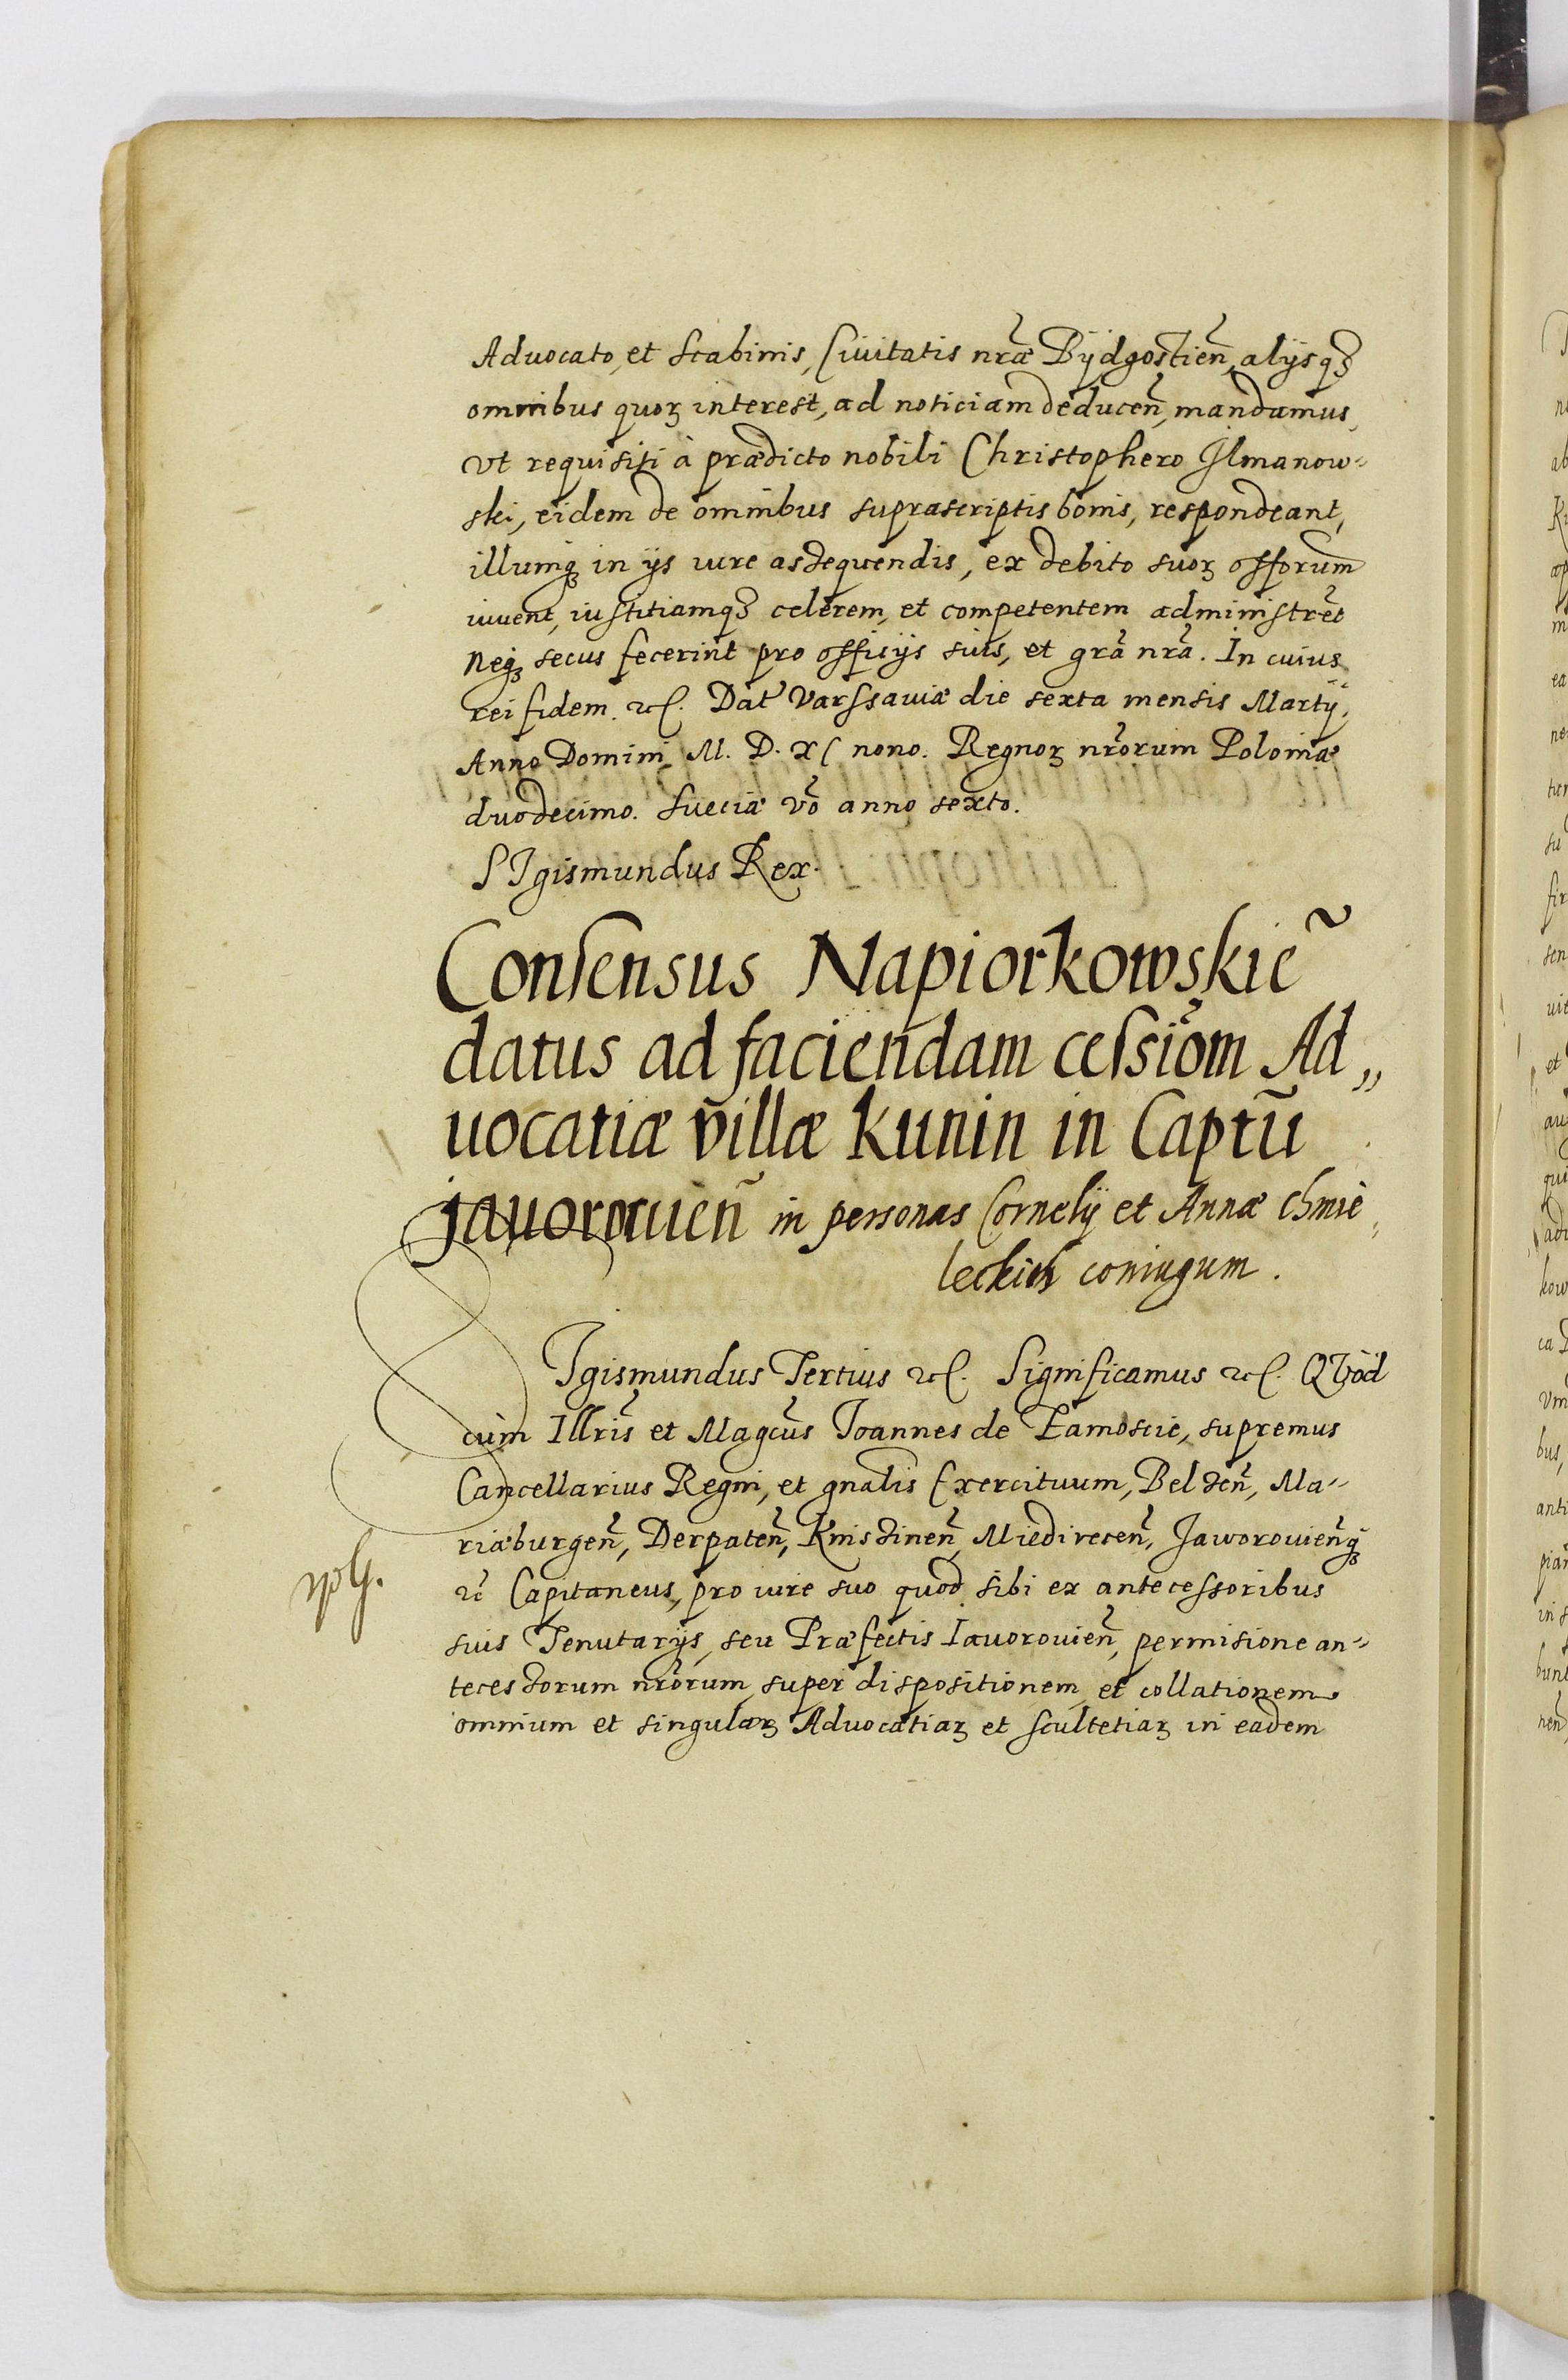 Advocato, et Scabinis, Ciuitatis nr̃æ Bÿdgostien̄, alÿsqꝫ
omnibus quoꝝ interest, ad noticiam deducen̄, mandamus,
vt requisiti à prædicto nobili Christophero Jlmanow-
ski, eidem de omnibus suprascriptis bonis, respondeant,
illumqꝫ in ÿs iure assequendis, ex debito suoꝝ offorum
iuuent, iustitiamqꝫ celerem, et competentem administrēt
Neqꝫ secus fecerint pro officÿs suis, et grã nrã. In cuius
rei fidem. ꝛc. Dat Varssauiæ die sexta mensis Martÿ,
Anno Domini M. D. XC nono. Regnoꝝ nr̃orum Poloniæ
duodecimo. Sueciæ vō anno sexto.
SIgismundus Rex.
Consensus Napiorkowskiē
datus ad faciendam cessiōm Ad„
uocatiæ villæ Kunin in Captū
jauorouien̄ in personas Cornelÿ et Annæ Chmie„
leckich coniugum.
SIgismundus Tertius ꝛc. Significamus ꝛc. QVod
cùm Illris̄ et Magcūs Joannes de Zamoscie, supremus
Cancellarius Regni, et gnalis Exercituum, Belzen̄, Ma-
riæburgen̄, Derpaten̄, Kniszinen̄, Miedirecen̄, Jaworouien̄qꝫ
ꝛc̄ Capitaneus, pro iure suo quod sibi ex antecessoribus
suis Tenutarÿs, seu Præfectis Iauorouien̄, permisione an-
tecessorum nr̃orum, super dispositionem, et collationem
omnium et singulaꝝ Aduocatiaꝝ et scultetiaꝝ in eadem